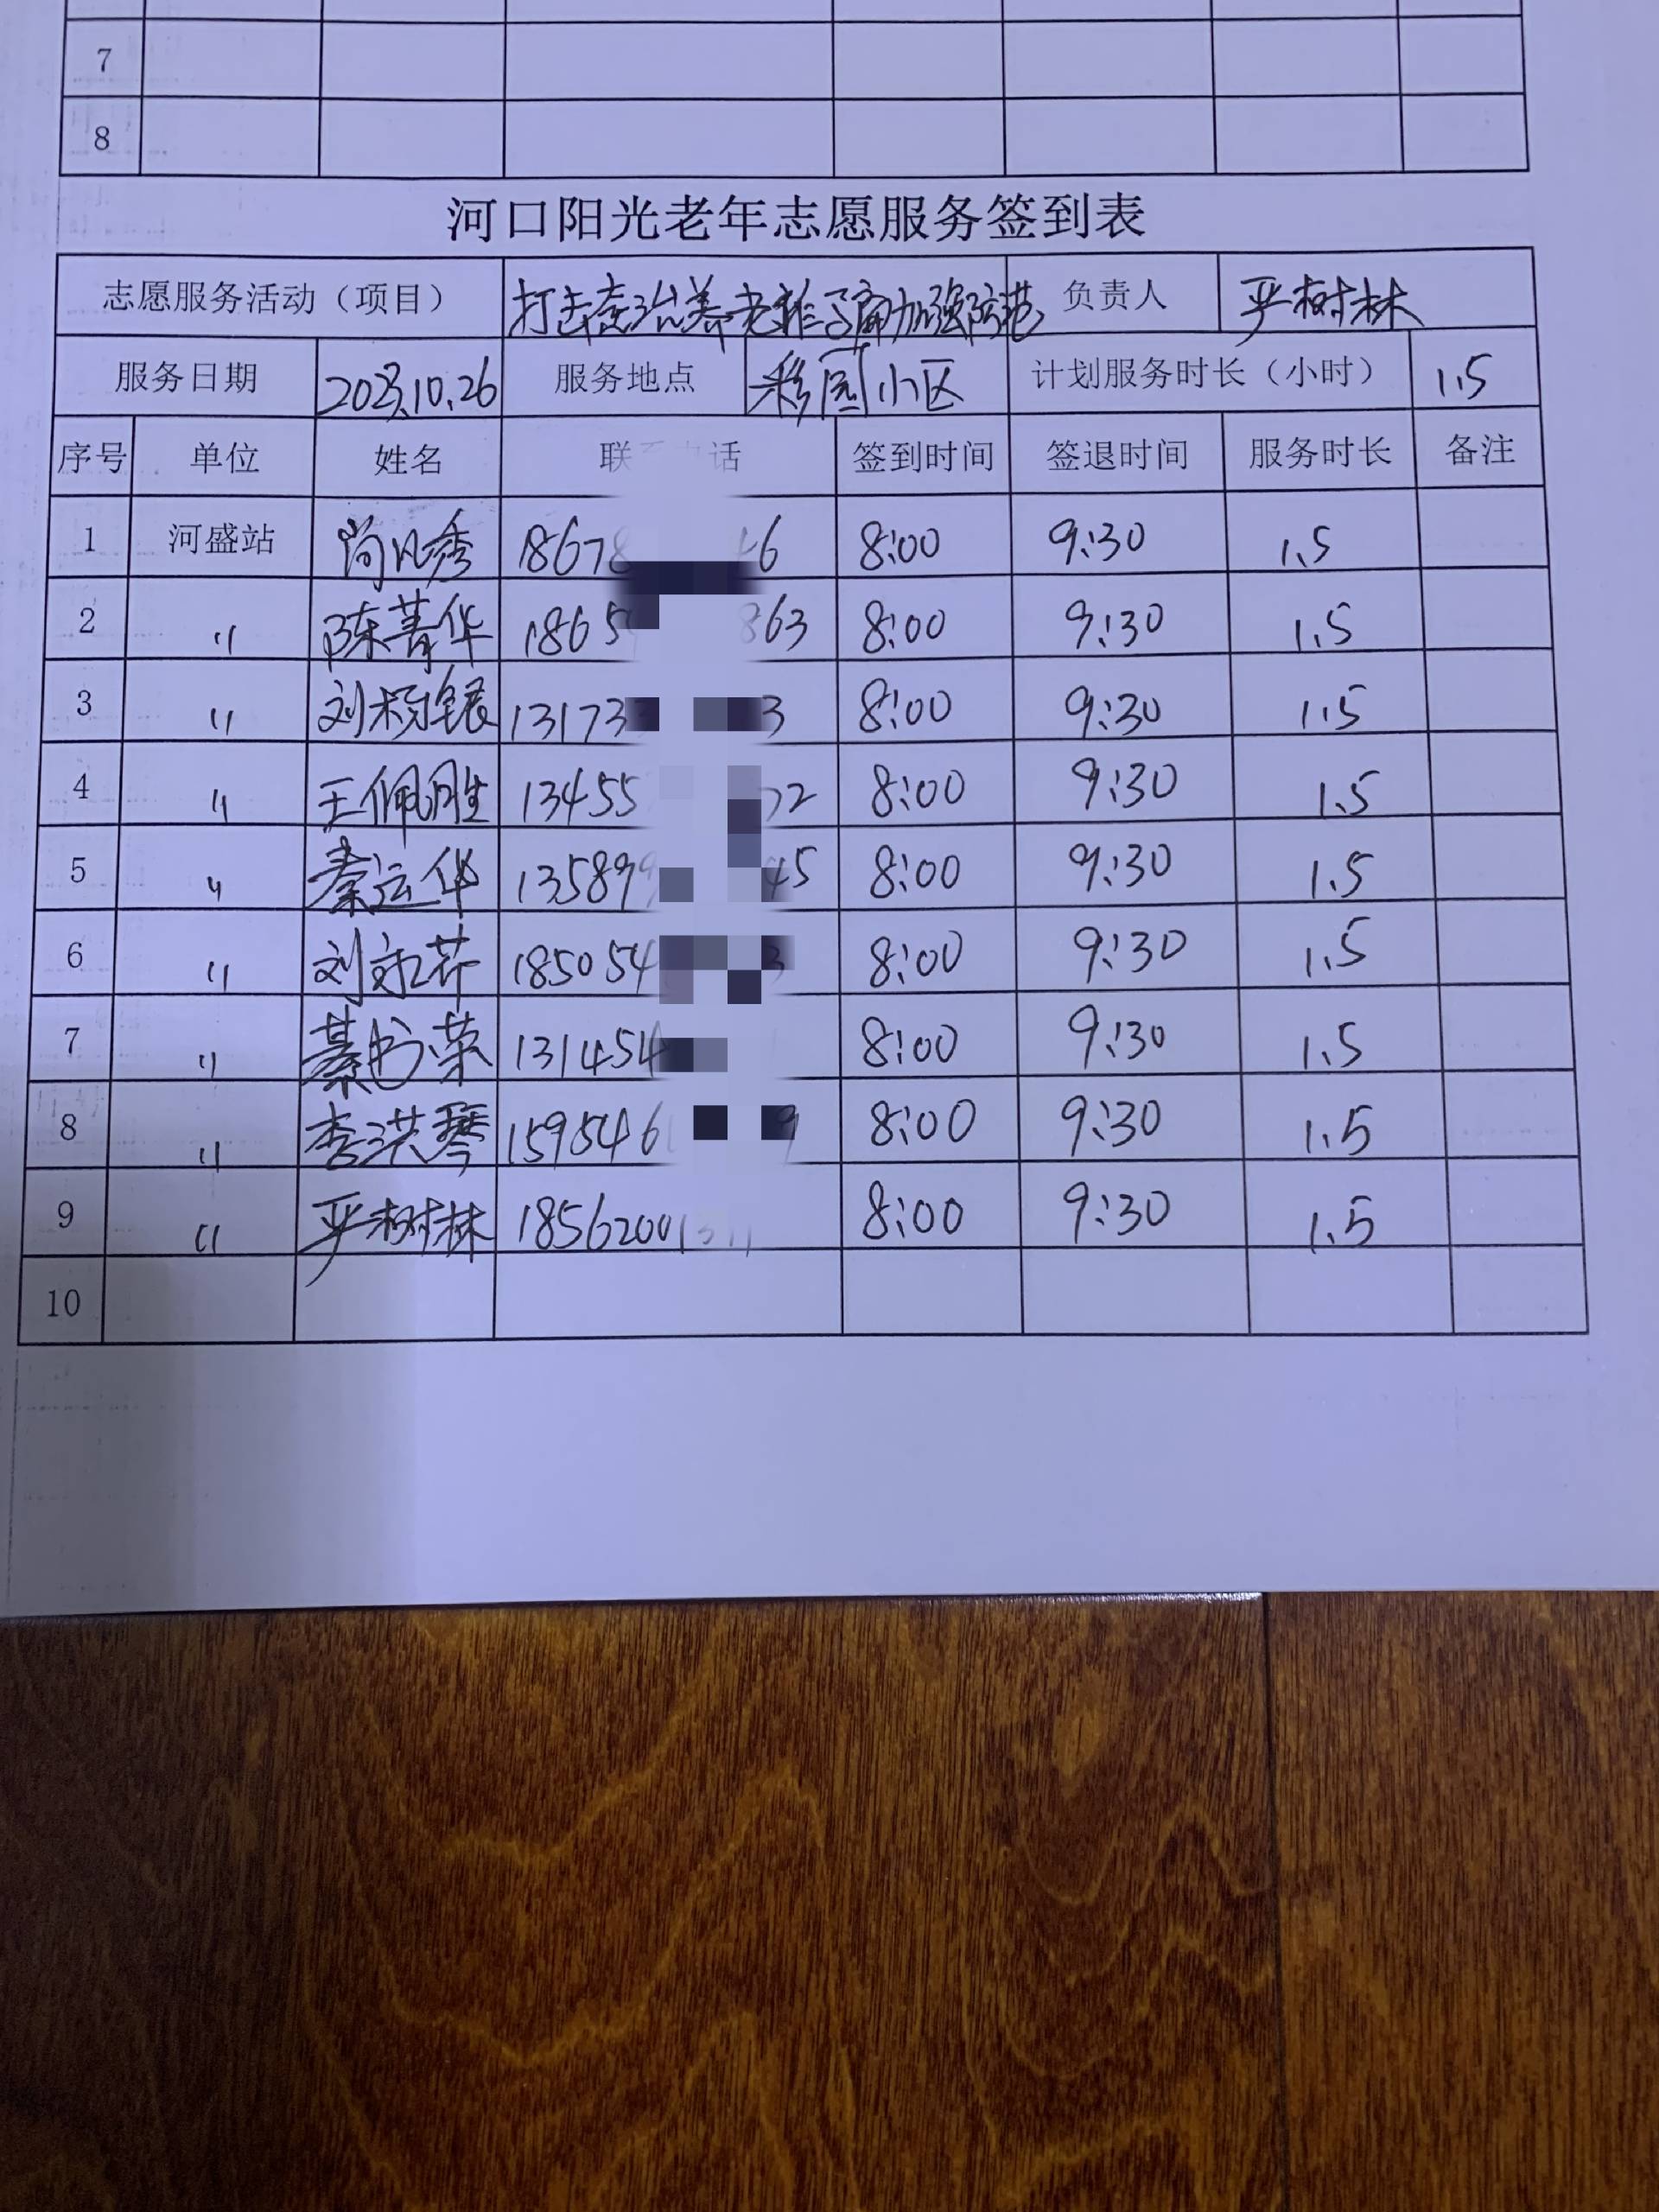 7
8
河口阳光老年志愿服务签到表
志愿服务活动（项目） 打击整治养老诈骗加强防范 负责人 严树林
服务日期 2023.10.26 服务地点 彩园小区 计划服务时长（小时） 1.5
序号 单位 姓名 联 话 签到时间 签退时间 服务时长 备注
1 河盛站 尚凡秀 1867 6 8:00 9:30 1.5
2 〃 陈菁华 1865 863 8:00 9:30 1.5
3 〃 刘杨银 13173 3 8:00 9:30 1.5
4 〃 王佩胜 13455 72 8:00 9:30 1.5
5 〃 秦运华 13589 45 8:00 9:30 1.5
6 〃 刘 芬 185054 8:00 9:30 1.5
7 〃 綦书荣 131454 8:00 9:30 1.5
8 〃 李洪琴 159546 9 8:00 9:30 1.5
9 〃 严树林 18562001 8:00 9:30 1.5
10